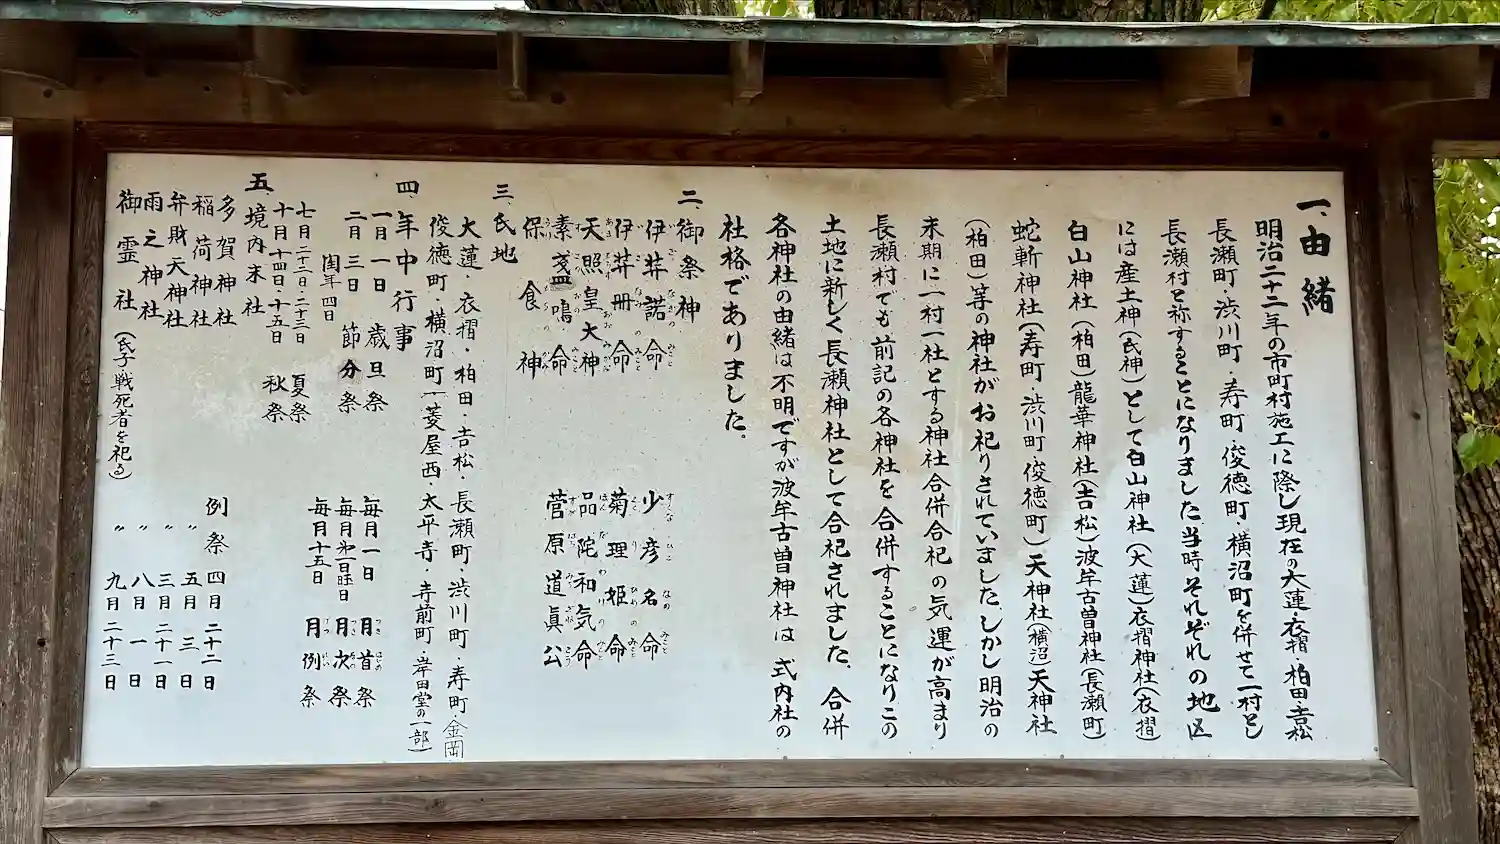 一、由緒
明治二十二年の市町村施工に際し現在の大蓮・衣摺・柏田・吉松
長瀬町・渋川町・寿町・俊徳町・横沼町を併せて一村とし
長瀬村と称することになりました当時それぞれの地区
には産土神(氏神)として白山神社(大蓮)衣摺神社(衣摺)
白山神社(柏田)龍華神社(吉松)波牟古曽神社(長瀬町)
蛇斬神社(寿町・渋川町・俊徳町)天神社(横沼)天神社
(柏田)等の神社がお祀りされていました。しかし明治の
末期に一村一社とする神社合併合祀の気運が高まり
長瀬村でも前記の各神社を合併することになりこの
土地に新しく長瀬神社として合祀されました。合併
各神社の由緒は不明ですが波牟古曽神社は式内社の
社格でありました。
二、御祭神
伊弉諾命 少彦名命
伊弉冊命 菊理姫命
天照皇大神 品陀和気命
素盞鳴命 菅原道眞公
保食神
三、氏地
大蓮・衣摺・柏田・吉松・長瀬町・渋川町・寿町・金岡
俊徳町・横沼町(菱屋西・太平寺・寺前町・岸田堂の一部)
四、年中行事
一月一日 歳旦祭 毎月一日 月首祭
二月三日 節分祭 毎月第二日曜日 月次祭
閏年四日 毎月十五日 月例祭
七月二十二日・二十三日 夏祭
十月十四日・十五日 秋祭
五、境内末社
多賀神社 例祭 四月二十二日
稲荷神社 〃 五月三日
弁財天神社 〃 三月二十一日
雨之神社 〃 八月一日
御霊社(氏子戦死者を祀る) 〃 九月二十三日